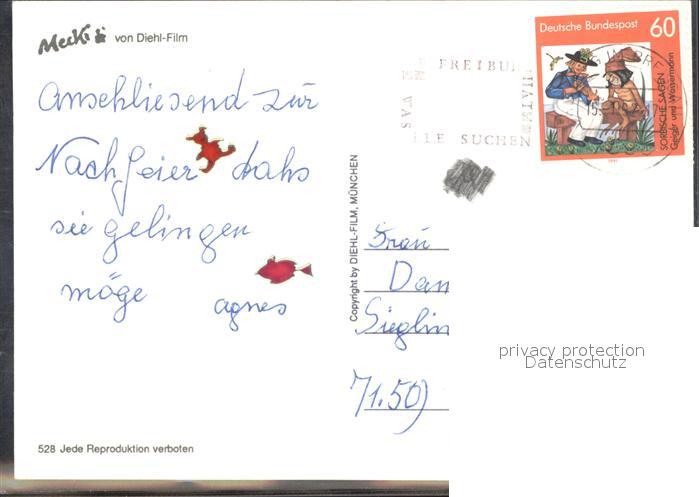 Mecki von Diehl-Film
Anschliesend zur
Nachfeier dahs
sie gelingen
möge agnes
528 Jede Reproduktion verboten
Copyright by DIEHL-FILM, MÜNCHEN
FREIBU
WAS
LE SUCHEN
Deutsche Bundespost 60
SORBISCHE SAGEN
Geiger und Wassermann
1991
Frau
Dan
Sieglin
7150)
privacy protection
Datenschutz